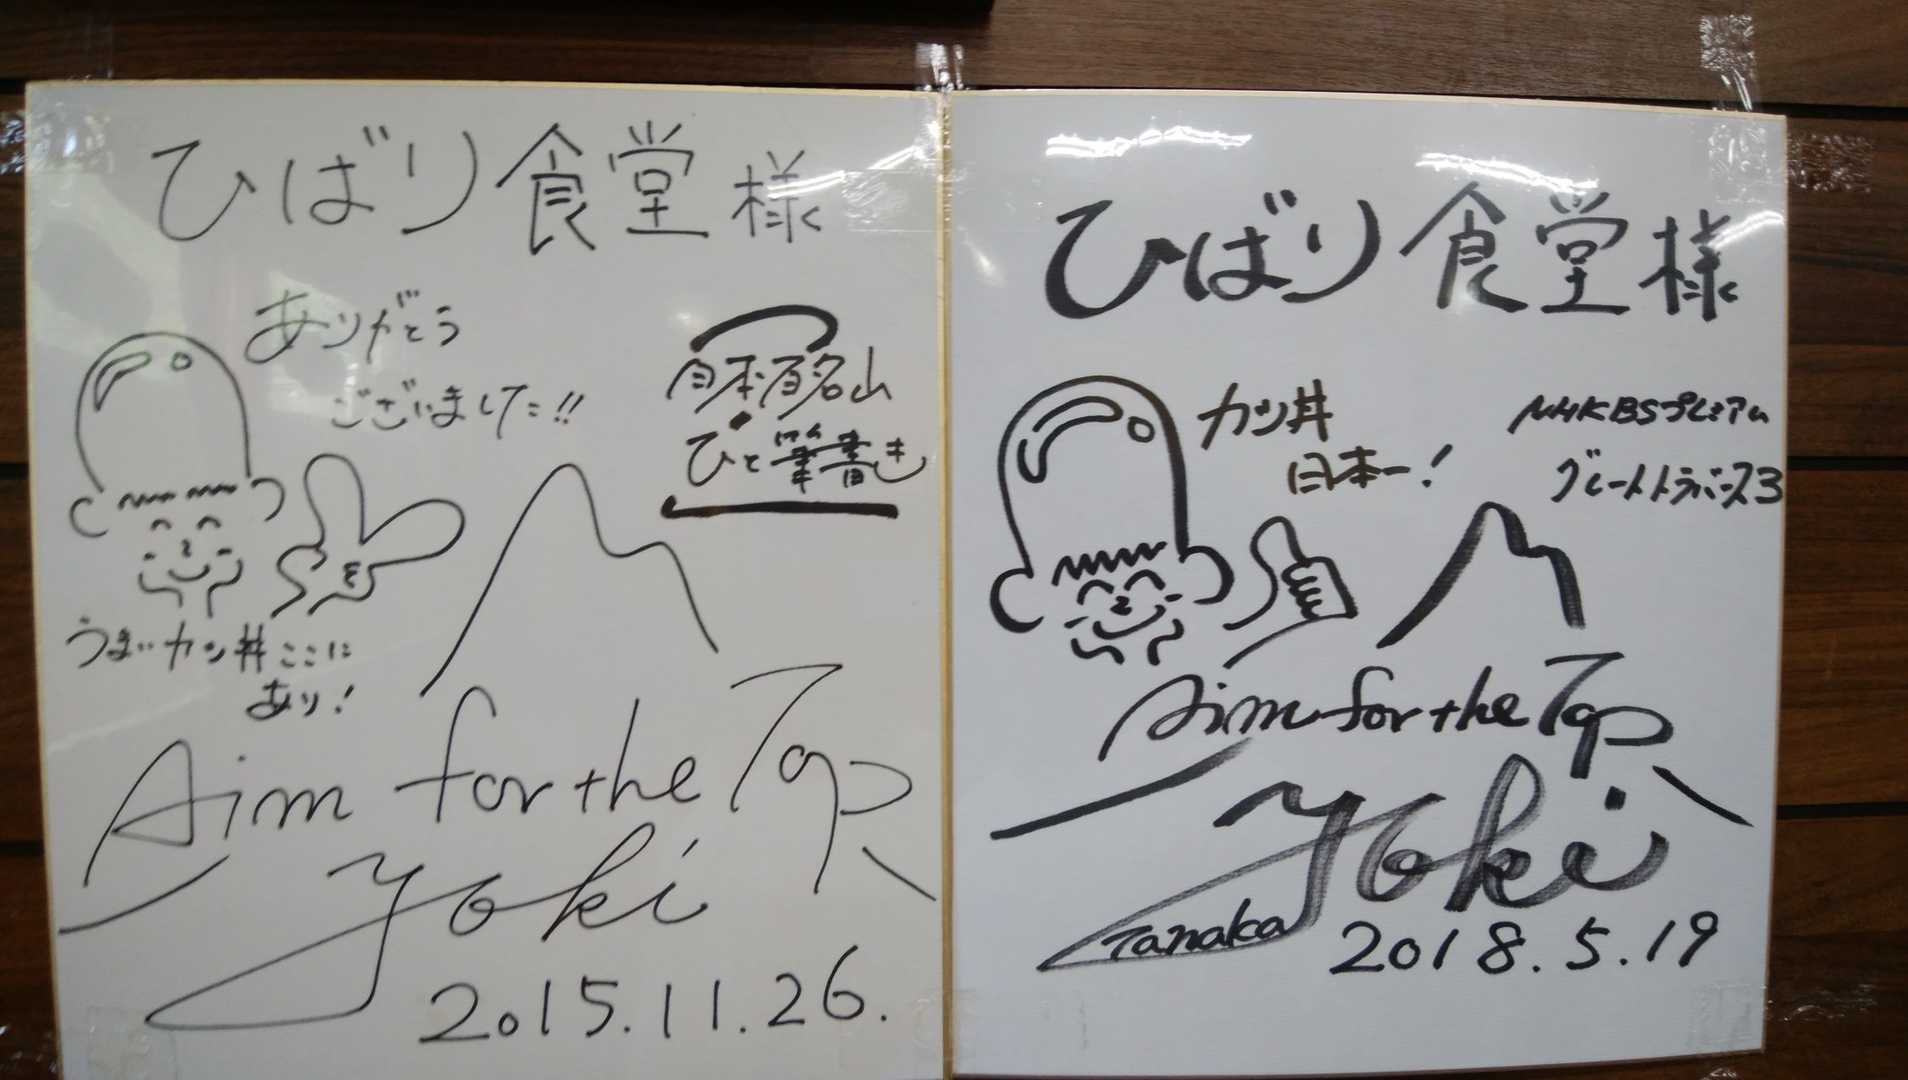 ひばり食堂様
ありがとう
ございました!!
日本百名山
ひと筆書き
うまいカツ丼ここに
あり!
Aim for the Top
Yoki
2015.11.26.
ひばり食堂様
カツ丼
日本一!
NHKBSプレミアム
グレートトラバース3
Aim for the Top
Yoki
Tanaka
2018.5.19